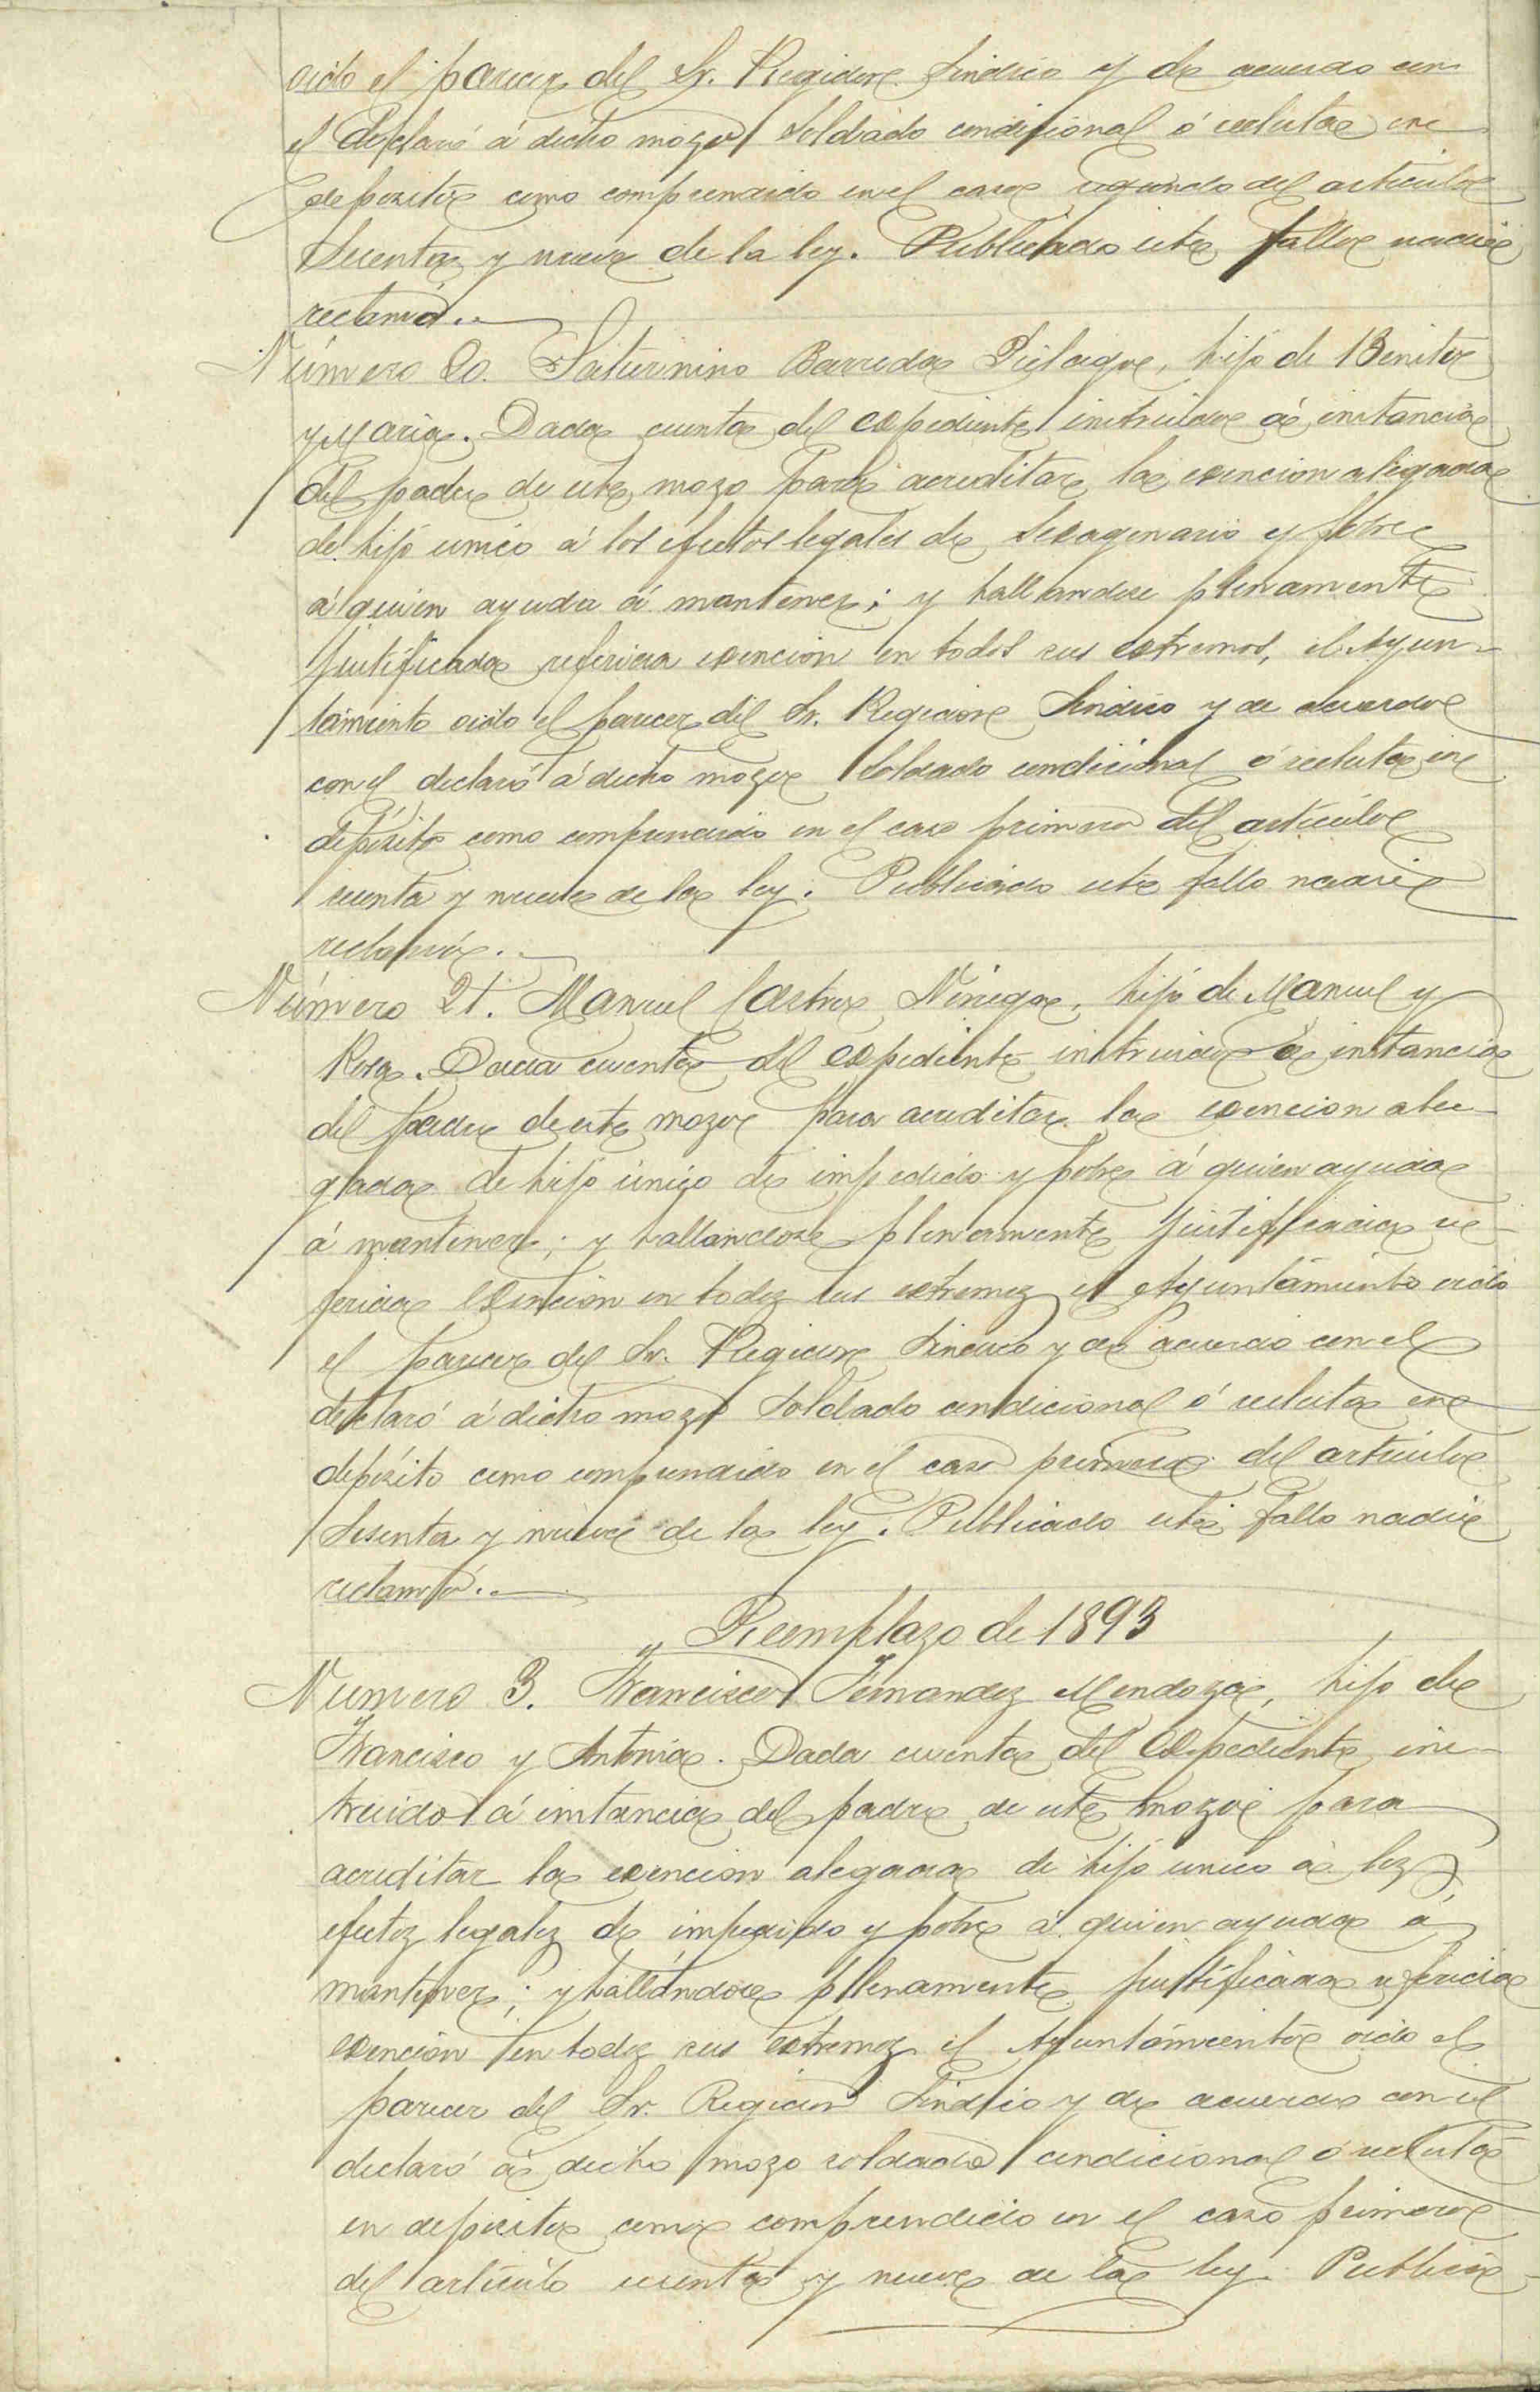 oido el parecer del Sr. Regidor Sindico y de acuerdo con
el declaró á dicho mozo soldado condicional ó recluta en
deposito como comprendido en el caso segundo del articulo
sesenta y nueve de la ley. Publicado este fallo nadie
reclamó..
Número 20. Saturnino Barreda, hijo de Benito
y Maria. Dada cuenta del expediente instruido á instancia
del padre de este mozo para acreditar la exencion alegada
de hijo unico á los efectos legales de sexagenario y pobre
á quien ayuda á mantener; y hallandose plenamente
justificada referida exencion en todos sus extremos, el Ayun-
tamiento oido el parecer del Sr. Regidor Sindico y de acuerdo
con el declaró á dicho mozo soldado condicional ó recluta en
depósito como comprendido en el caso primero del artículo
sesenta y nueve de la ley. Publicado este fallo nadie
reclamó..
Número 21. Manuel Castro, hijo de Manuel y
Rosa. Dada cuenta del expediente instruido á instancia
del padre de este mozo para acreditar la exencion ale-
gada de hijo único de impedido y pobre á quien ayuda
á mantener; y hallandose plenamente justificada re-
ferida exencion en todoz sus extremoz el Ayuntamiento oido
el parecer del Sr. Regidor Sindico y de acuerdo con el
declaró á dicho mozo soldado condicional ó recluta en
depósito como comprendido en el caso primero del artículo
sesenta y nueve de la ley. Publicado este fallo nadie
reclamó..
Reemplazo de 1893
Numero 3. Francisco Fernandez Mendoza, hijo de
Francisco y Antonia. Dada cuenta del expediente ins-
truido á instancia del padre de este mozo para
acreditar la exencion alegada de hijo unico á loz
efectoz legalez de impedido y pobre á quien ayuda á
mantener; y hallándose plenamente justificada referida
exencion en todoz sus extremoz el Ayuntamiento oido el
parecer del Sr. Regidor Sindico y de acuerdo con el
declaró á dicho mozo soldado condicional ó recluta
en deposito como comprendido en el caso primero
del artículo sesenta y nueve de la ley. Publica-